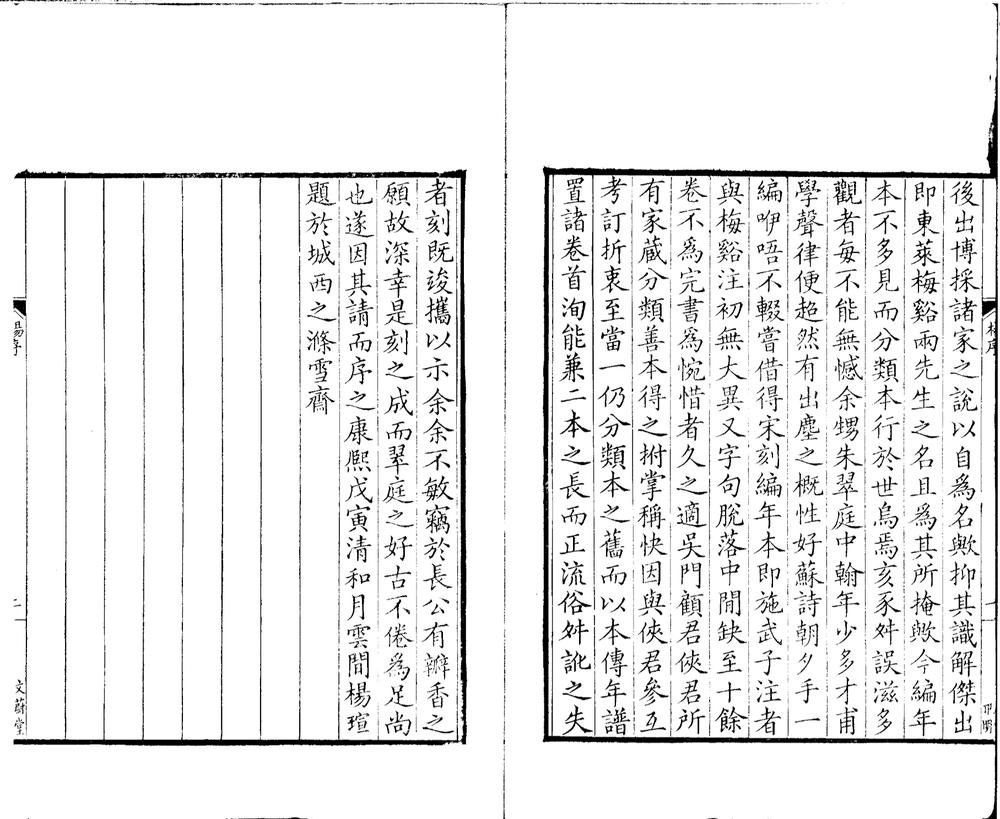 後出博採諸家之說以自爲名歟抑其識解傑出
即東萊梅谿兩先生之名且爲其所掩歟今編年
本不多見而分類本行於世烏焉亥豕舛誤滋多
觀者每不能無憾余甥朱翠庭中翰年少多才甫
學聲律便超然有出塵之槪性好蘇詩朝夕手一
編咿唔不輟嘗借得宋刻編年本即施武子注者
與梅谿注初無大異又字句脫落中閒缺至十餘
卷不爲完書爲惋惜者久之適吳門顧君俠君所
有家藏分類善本得之拊掌稱快因與俠君參互
考訂折衷至當一仍分類本之舊而以本傳年譜
置諸卷首洵能兼二本之長而正流俗舛訛之失
者刻既竣攜以示余余不敏竊於長公有瓣香之
願故深幸是刻之成而翠庭之好古不倦爲足尚
也遂因其請而序之康熙戊寅清和月雲閒楊瑄
題於城西之滌雪齋
楊序
二
文蔚堂